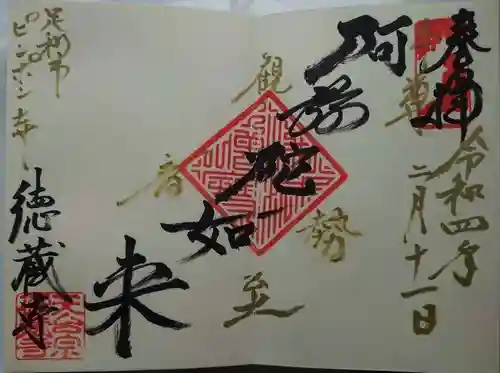 奉拝
令和四年
二月十一日
本尊
阿弥陀如来
観音
勢至
足利市
ピンポン寺
徳蔵寺